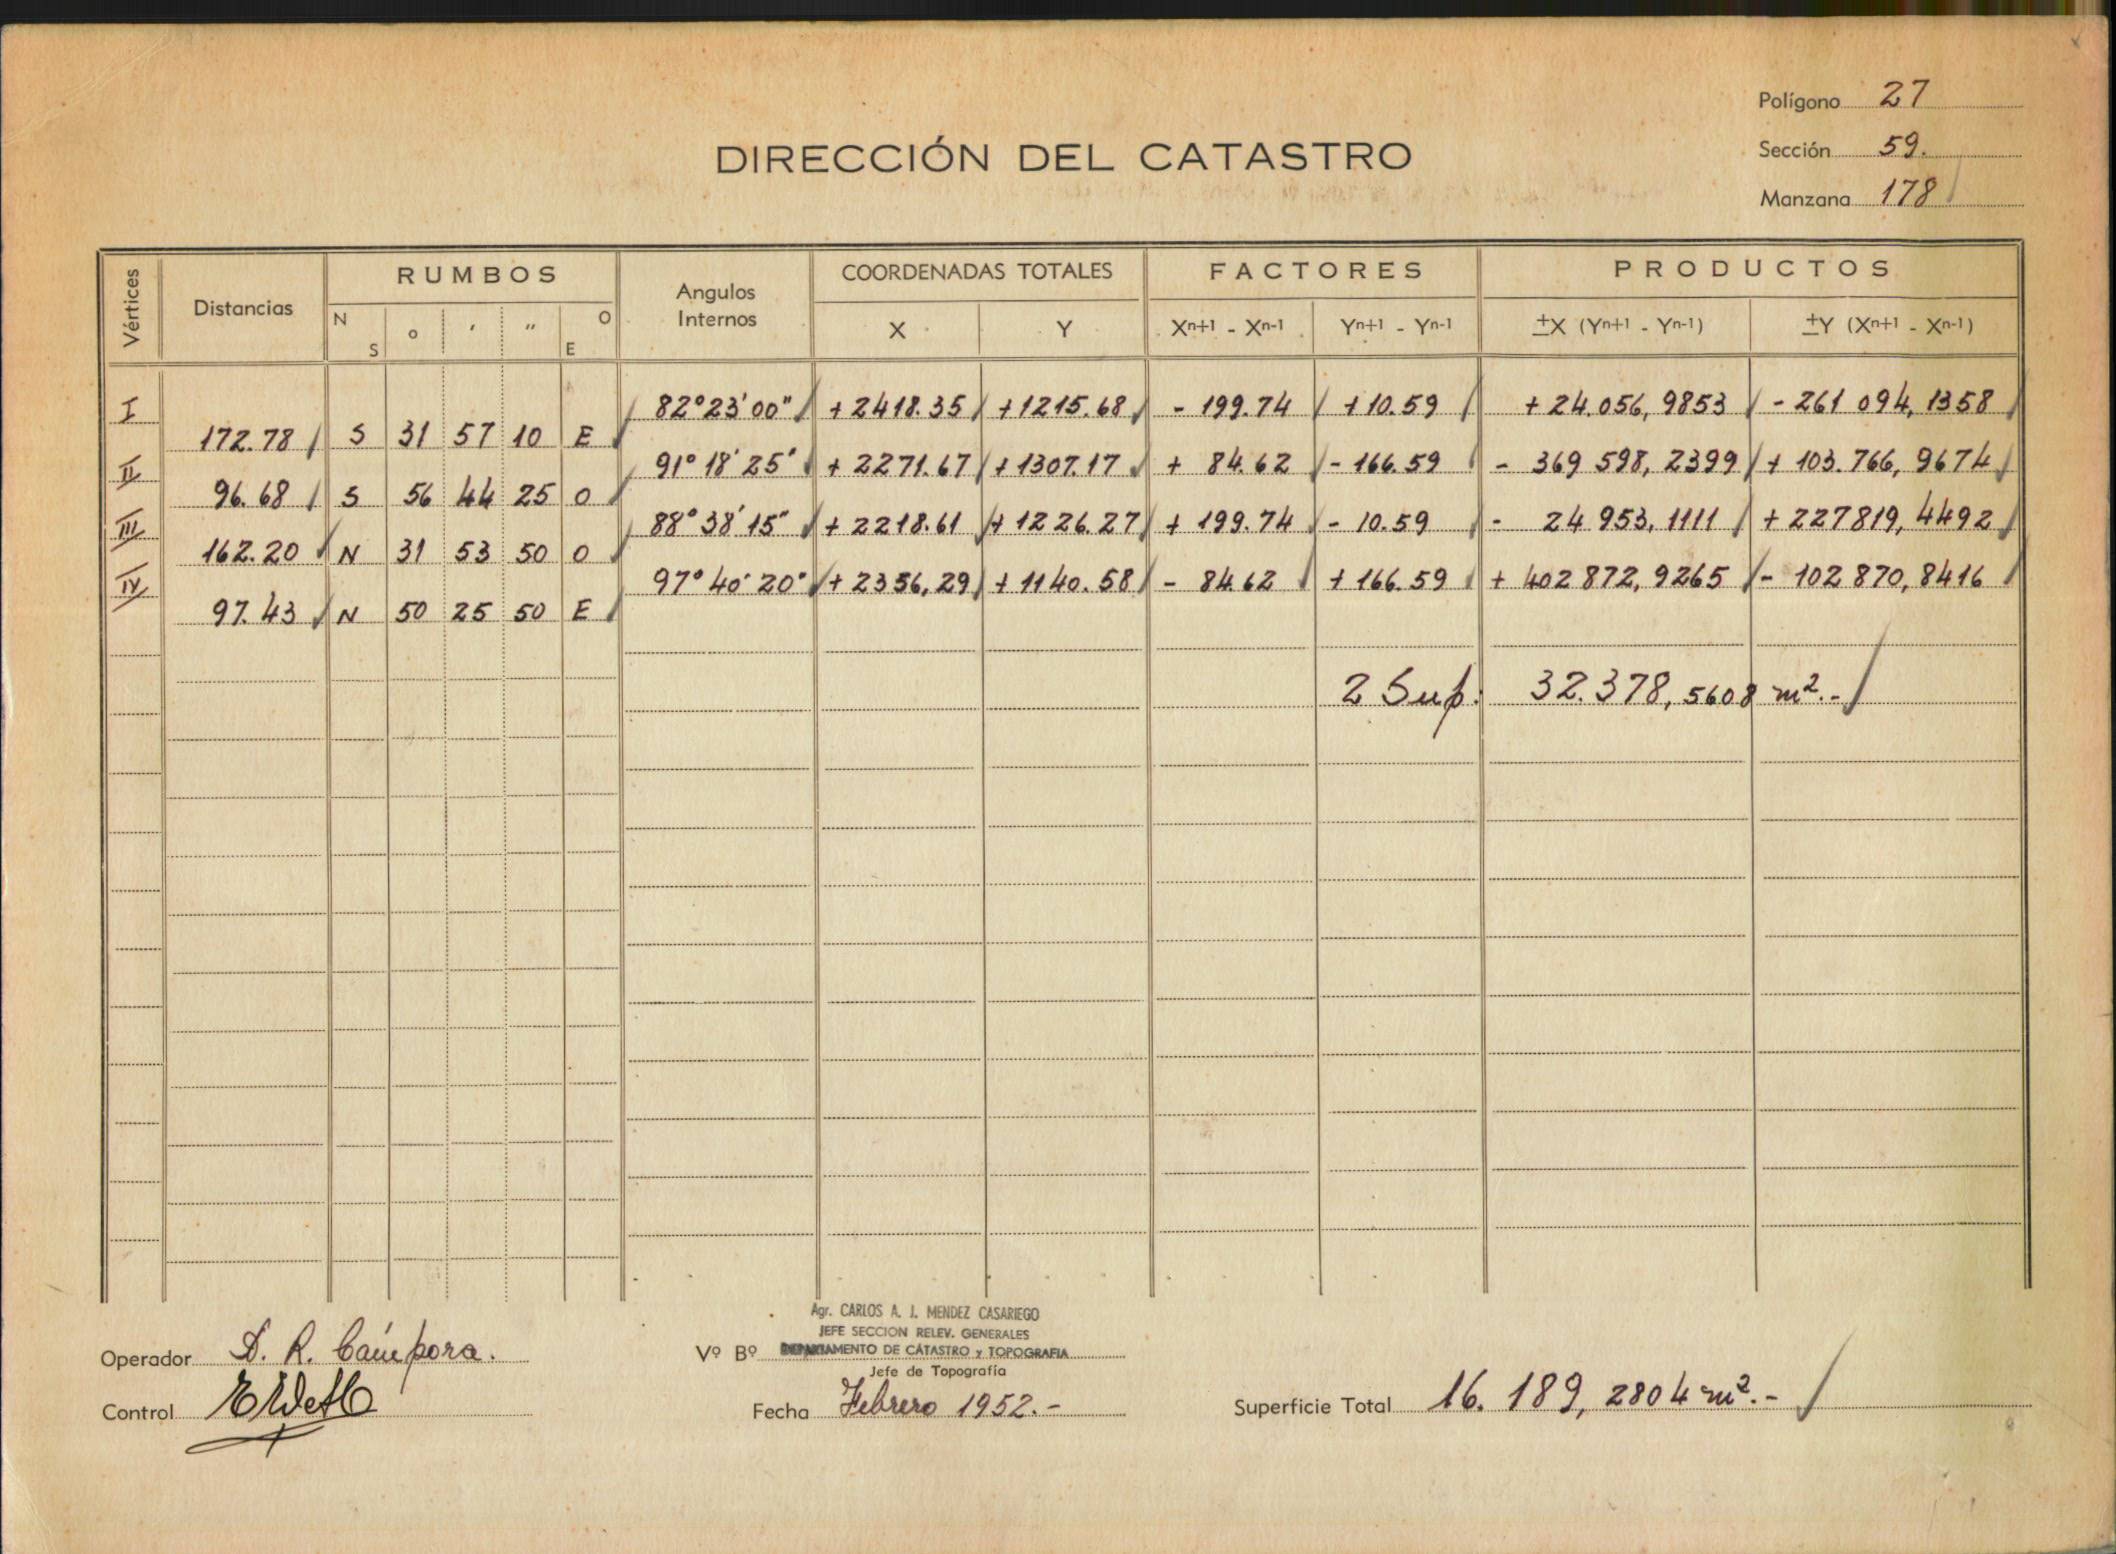 Polígono 27
DIRECCIÓN DEL CATASTRO
Sección 59.
Manzana 178
Vértices Distancias RUMBOS Angulos Internos COORDENADAS TOTALES FACTORES PRODUCTOS
N S ° ′ ″ O E X Y Xn+1 - Xn-1 Yn+1 - Yn-1 ±X (Yn+1 - Yn-1) ±Y (Xn+1 - Xn-1)
I 82°23'00" +2418.35 +1215.68 - 199.74 +10.59 +24.056,9853 - 261 094,1358
172.78 S 31 57 10 E
II 91°18'25" + 2271.67 + 1307.17 + 84.62 - 166.59 - 369 598,2399 + 103.766,9674
96.68 S 56 44 25 O
III 88°38'15" + 2218.61 + 1226.27 + 199.74 - 10.59 - 24 953,1111 + 227819,4492
162.20 N 31 53 50 O
IV 97°40'20" + 2356,29 + 1140.58 - 84.62 + 166.59 + 402 872,9265 - 102 870,8416
97.43 N 50 25 50 E
2 Sup. 32.378,5608 m².-
Agr. CARLOS A. J. MENDEZ CASARIEGO
JEFE SECCION RELEV. GENERALES
Operador D. R. Cámpora. Vº Bº DEPARTAMENTO DE CATASTRO y TOPOGRAFIA
Jefe de Topografía
Control Fecha Febrero 1952.- Superficie Total 16.189,2804 m².-